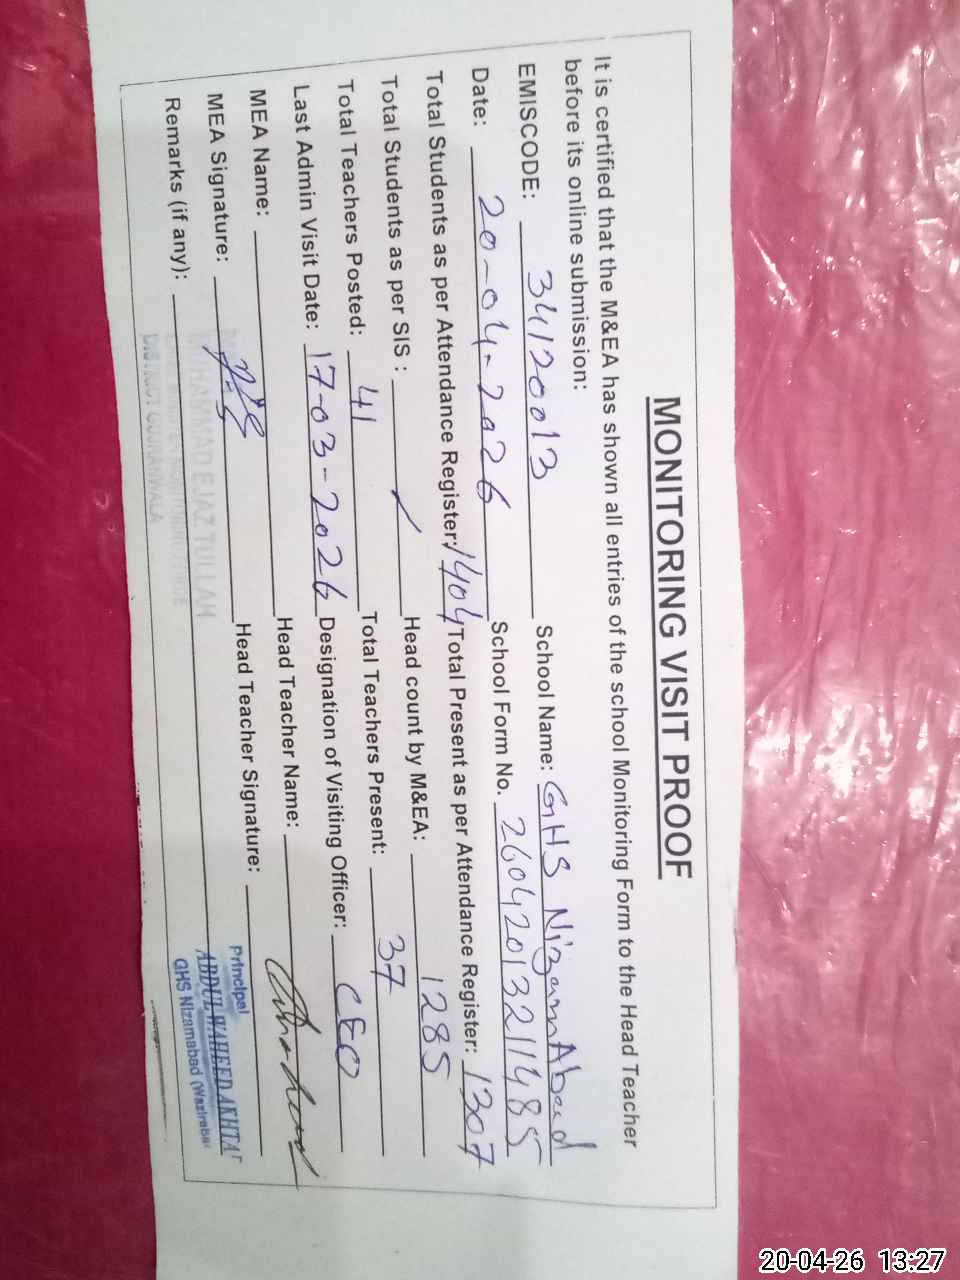 MONITORING VISIT PROOF
It is certified that the M&EA has shown all entries of the school Monitoring Form to the Head Teacher
before its online submission:
EMISCODE: 34120013 School Name: GHS NizamAbad
Date: 20-04-2026 School Form No. 26042013211485
Total Students as per Attendance Register: 1404 Total Present as per Attendance Register: 1307
Total Students as per SIS : ✓ Head count by M&EA: 1285
Total Teachers Posted: 41 Total Teachers Present: 37
Last Admin Visit Date: 17-03-2026 Designation of Visiting Officer: CEO
MEA Name: Head Teacher Name:
MEA Signature: Head Teacher Signature:
Remarks (if any):
MUHAMMAD EJAZ TULLAH
DISTRICT GUJRANWALA
Principal
ABDUL WAHEED AKHTAR
GHS Nizamabad (Wazirabad
20-04-26 13:27